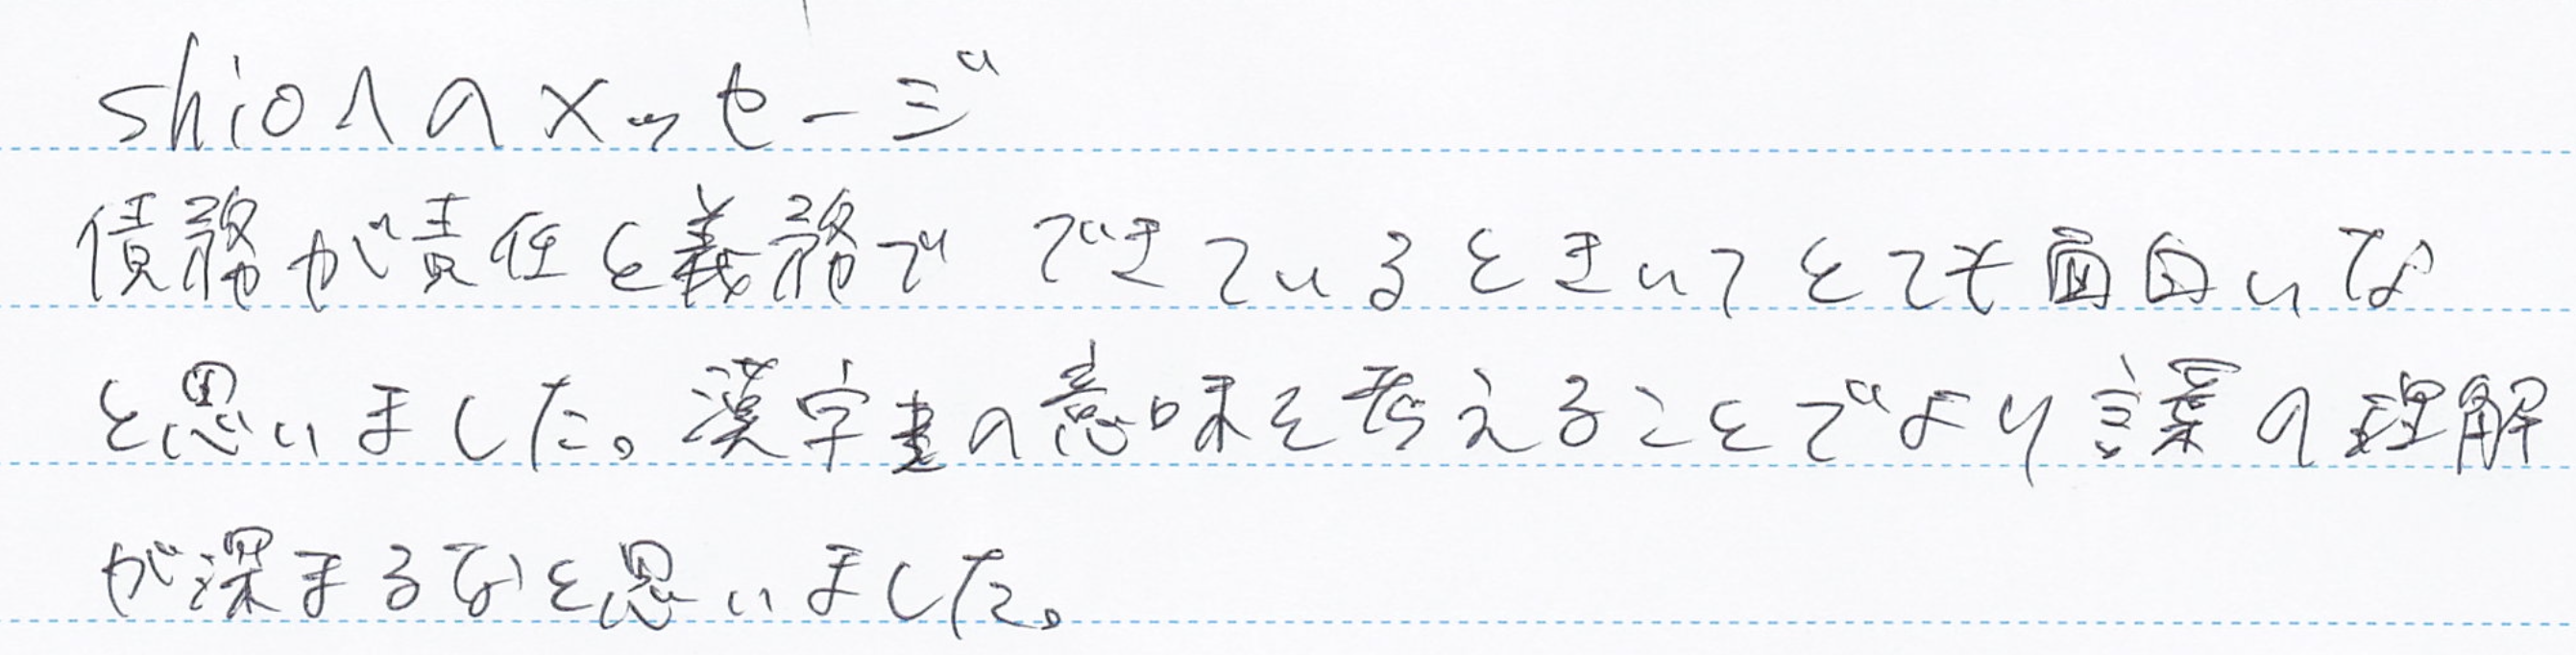 shioへのメッセージ
債務が責任と義務で できているときいてとても面白いな
と思いました。漢字書の意味を考えることでより言葉の理解
が深まるなと思いました。